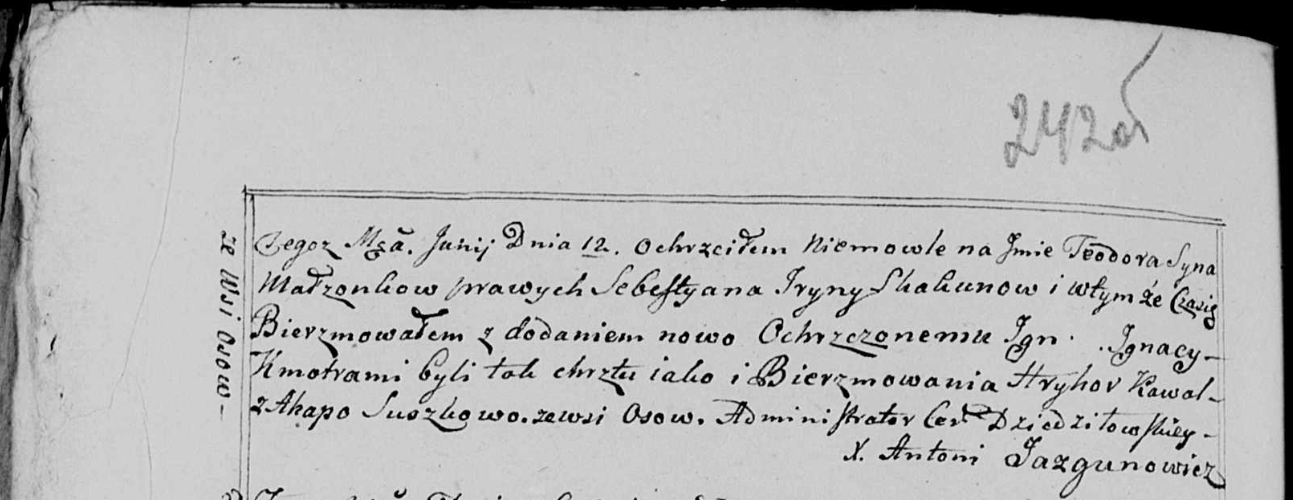 242об
ze Wsi Osow-
Tegoz Msca. Junij Dnia 12. ochrzciłem Niemowle na Jmie Teodora Syna
Małzonkow prawych Sebestyana Jryny Skakunow i wtymże Czasie
Bierzmowałem z dodaniem nowo Ochrzczonemu Jgn. Jgnacy-
Kmotrami byli tak chrztu iako i Bierzmowania Hryhor Kowal-
z Ahapo Suszkowo. zewsi Osow. Administrator Cer. Dziedziłowskiey-
X. Antoni Jazgunowicz